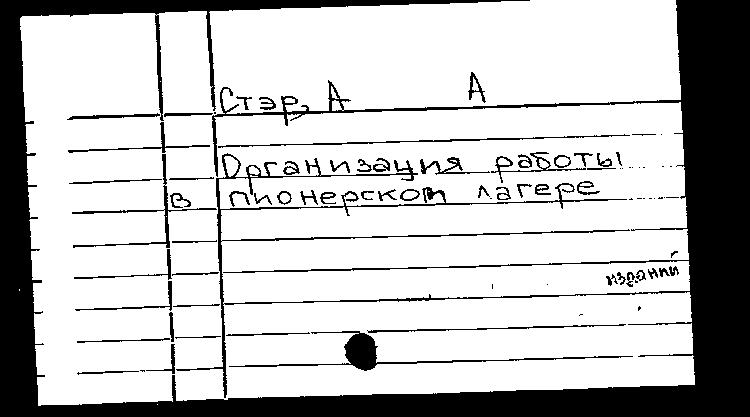 Стэр, А А
Организация работы
в пионерском лагере
изданий